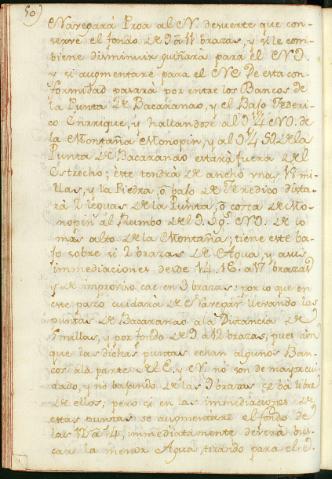 50
Navegará Proa al N. de suerte que con-
serve el fondo de 9 a 11 brazas, y si le com-
biene disminuir guiñará para el NO.
y si augmentare para el NE de esta con-
formidad pasará por entre los Bancos de
la Punta de Bacaranao, y el Bajo Federi-
co Enrique, y hallandose al O¼NO. de
la Montaña Monopin, y al O¼SO de la
Punta de Bacaranao estará fuera del
Estrecho; este tendrá de ancho unas 11 mi-
llas, y la Piedra, o bajo de Federico dista-
rá 2 leguas de la Punta, o costa de Mo-
nopin al Rumbo del NO. de lo
mas alto de la Montaña; tiene este ba-
jo sobre si 2 brazas de Agua, y a sus
immediaciones desde 14, 16, a 17 brazas
y de improviso cae en 3 brazas: por lo que en
este paso cuidará de Navegar llevando las
puntas de Bacaranao a la Distancia de
5 millas, y por fondo de 9 a 12 brazas, pues aun
que las dichas puntas echan algunos Ban-
cos a la parte del E, y N. no son de mayor cui-
dado, y no bajando de las 9 brazas se va libre
de ellos; pero si en las immediaciones de
estas puntas se augmentare el fondo de
las 12 a 14, immediatamente deverá bus-
car la menor Agua, tirando para el S.